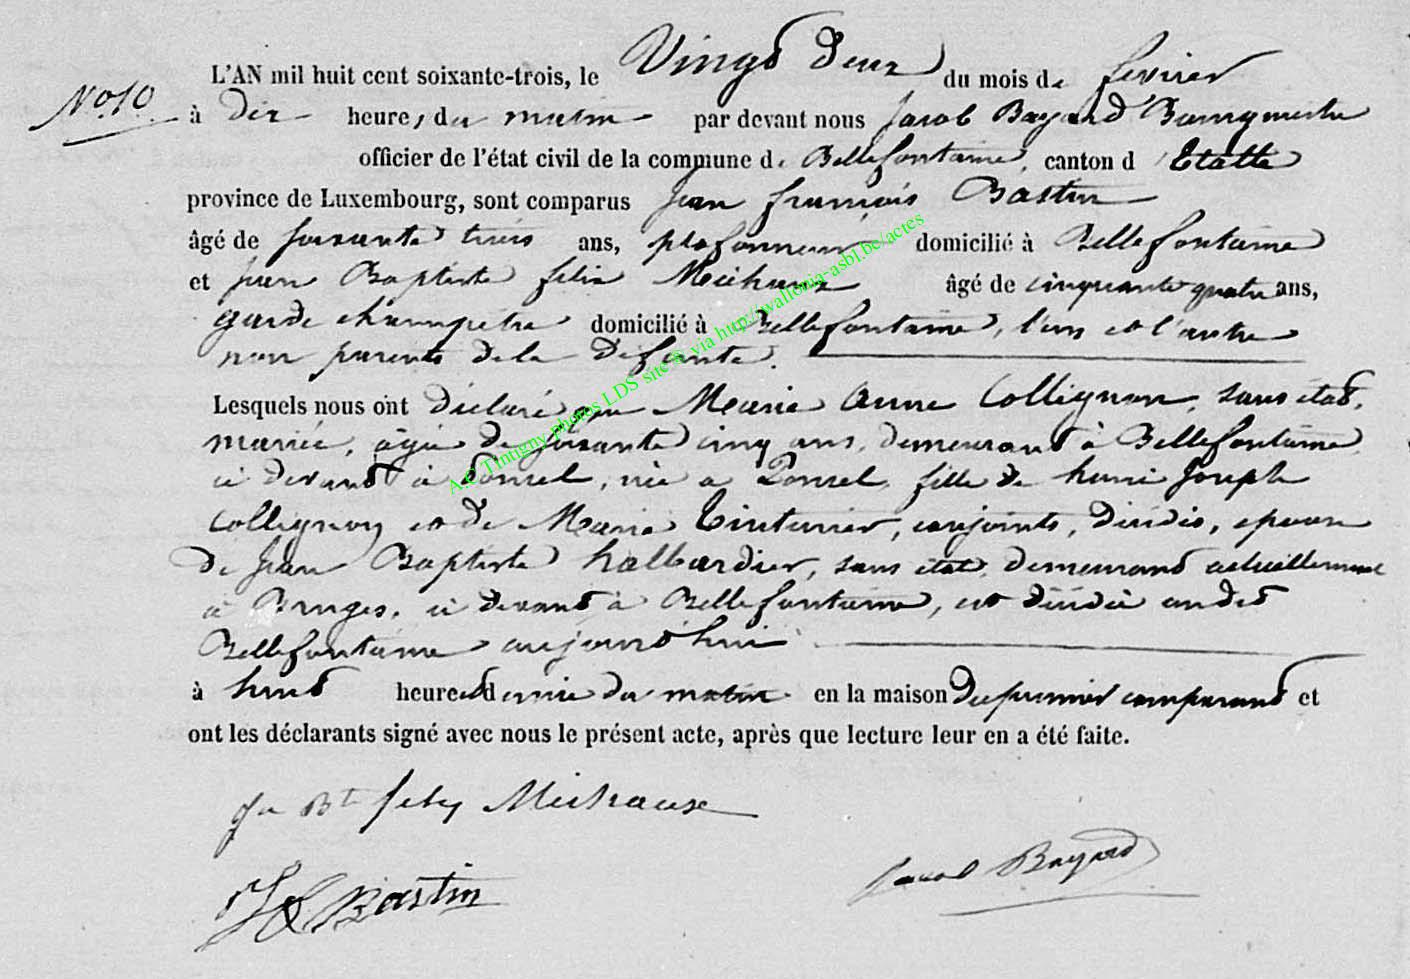 No. 10
L'AN mil huit cent soixante-trois, le Vingt deux du mois de fevrier
à dix heures du matin par devant nous Jacob Bayard Bourgmestre
officier de l'état civil de la commune de Bellefontaine, canton d'Etalle
province de Luxembourg, sont comparus Jean françois Bastin
âgé de soixante trois ans, plafonneur domicilié à Bellefontaine
et Jean Baptiste felix Meihaux âgé de cinquante quatre ans,
garde champetre domicilié à Bellefontaine, l'un et l'autre
non parents de la Défunte.
Lesquels nous ont Déclaré que Marie Anne Collignon, sans etat,
mariée, âgée de soixante cinq ans, demeurant à Bellefontaine
ci devant à, née a fille de henri Joseph
Collignon et de Marie Tinturier, conjoints, décédés, epouse
de Jean Baptiste hallbardier, sans etat, demeurant actuellement
à Bruges, ci devant à Bellefontaine, est décédée audit
Bellefontaine aujourd'hui
à huit heures et demie du matin en la maison du premier comparant et
ont les déclarants signé avec nous le présent acte, après que lecture leur en a été faite.
Jn Bt felix Meihause
Bastin
Jacob Bayard
A.C Tintigny photos LDS site © via http://wallonia-asbl.be/actes